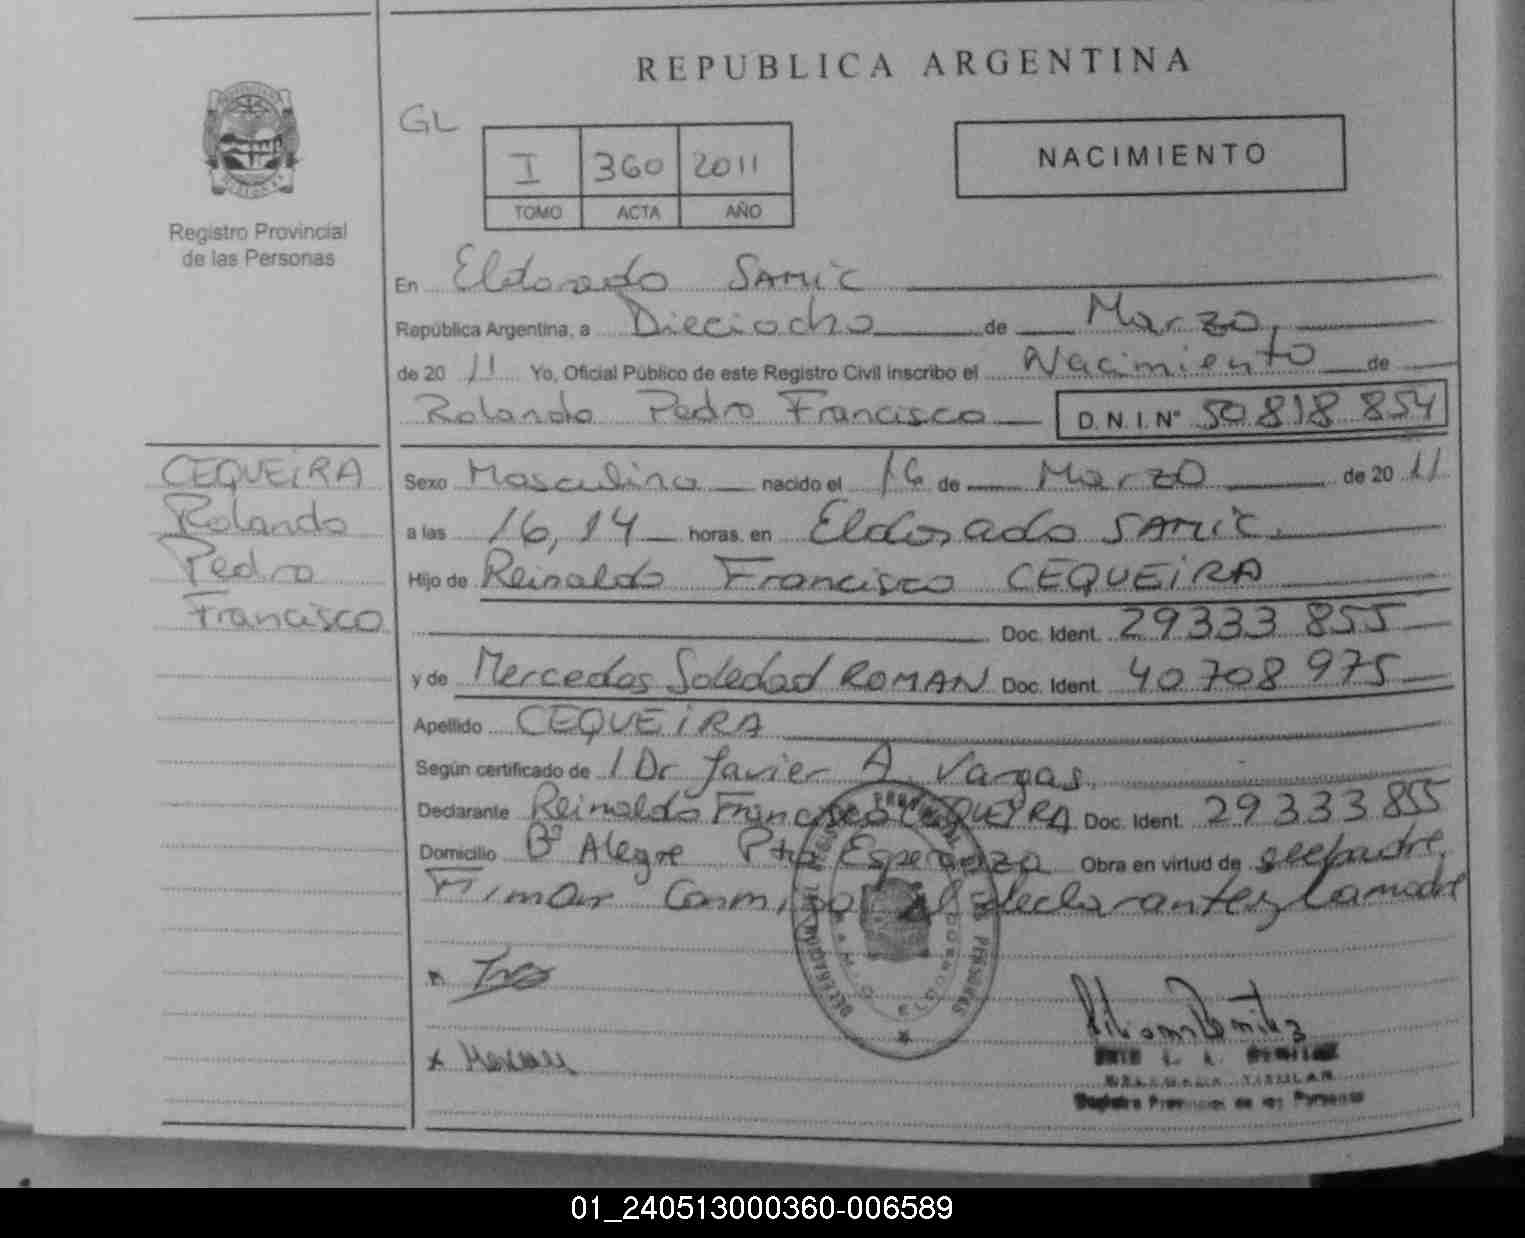 REPUBLICA ARGENTINA
GL
I 360 2011
TOMO ACTA AÑO
NACIMIENTO
Registro Provincial
de las Personas
En Eldorado SAMIC
República Argentina, a Dieciocho de Marzo,
de 20 11 Yo, Oficial Público de este Registro Civil inscribo el Nacimiento de
Rolando Pedro Francisco D. N. I. Nº 50 818 854
CEQUEIRA
Rolando
Pedro
Francisco
Sexo Masculino nacido el 16 de Marzo de 20 11
a las 16,14 horas. en Eldorado SAMIC.
Hijo de Reinaldo Francisco CEQUEIRA
Doc. Ident. 29333 855
y de Mercedes Soledad ROMAN Doc. Ident. 40708 975
Apellido CEQUEIRA
Según certificado de 1 Dr Javier A. Vargas.
Declarante Reinaldo Francisco CEQUEIRA Doc. Ident. 29333855
Domicilio Bº Alegre Pto Esperanza Obra en virtud de
Firman Conmigo el declarante y la madre
DELEGADA TITULAR
Registro Provincial de las Personas
01_240513000360-006589